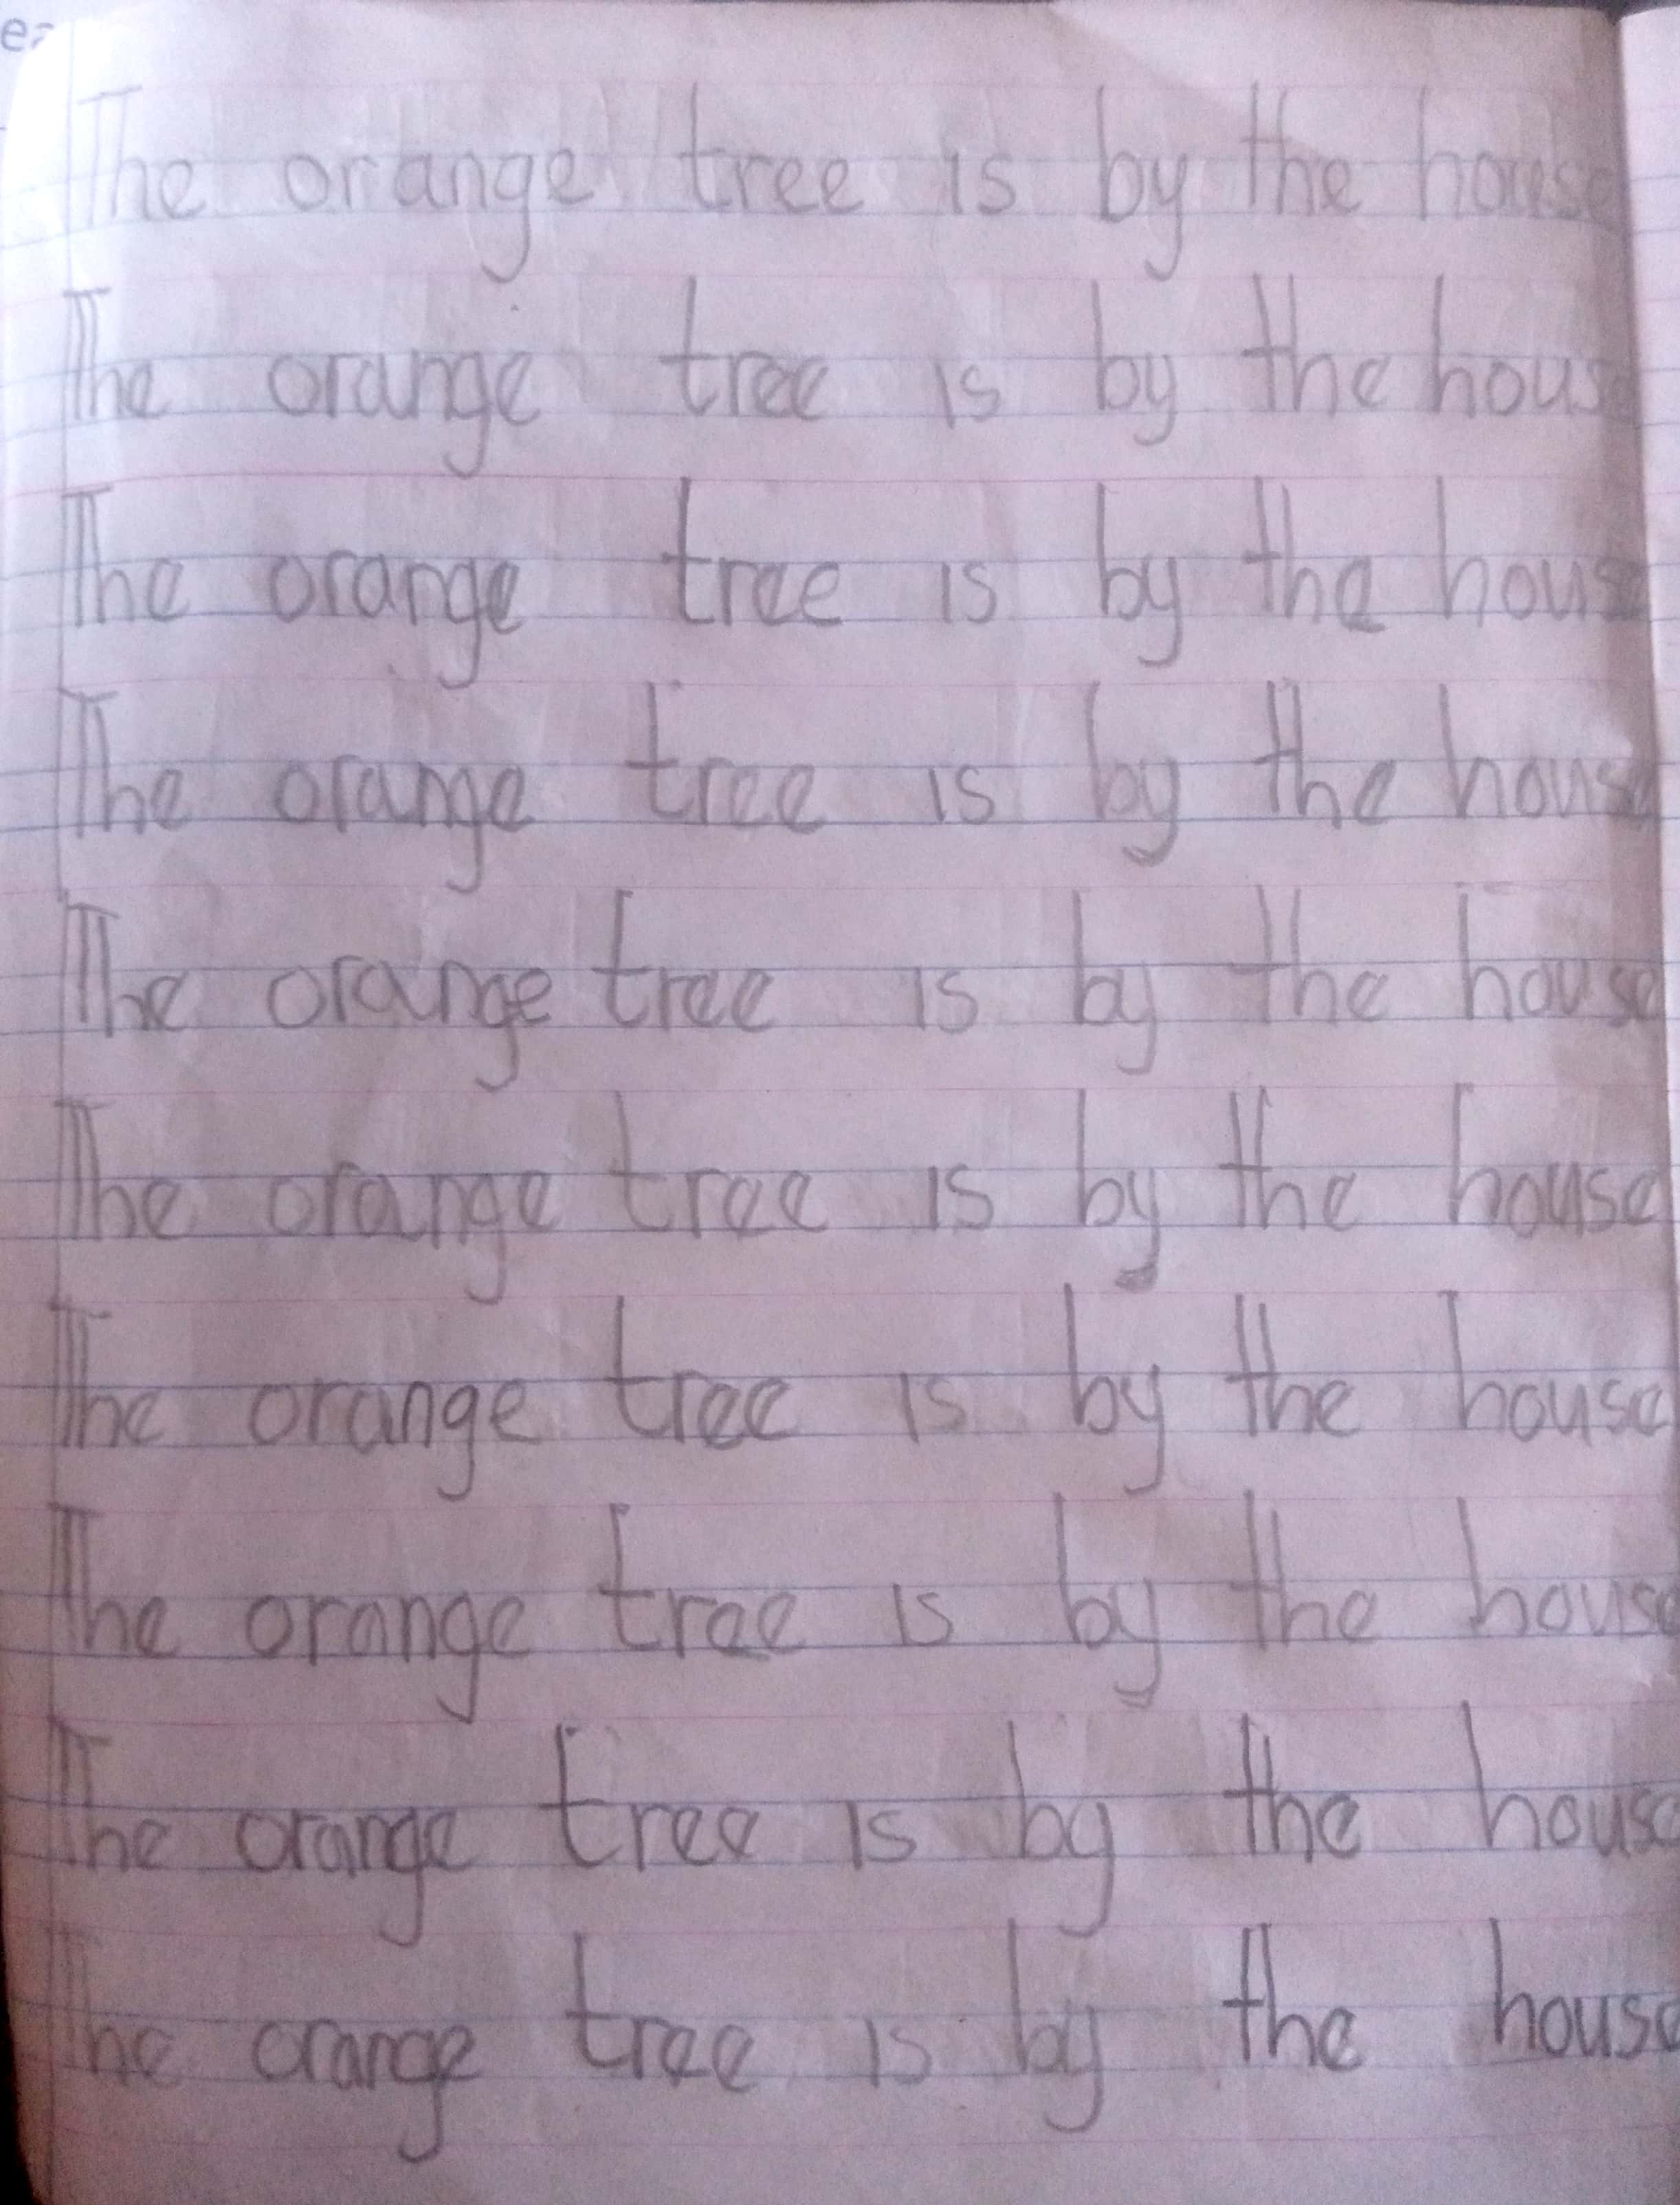 The orange tree is by the house
The orange tree is by the house
The orange tree is by the house
The orange tree is by the house
The orange tree is by the house
The orange tree is by the house
The orange tree is by the house
The orange tree is by the house
The orange tree is by the house
The orange tree is by the house